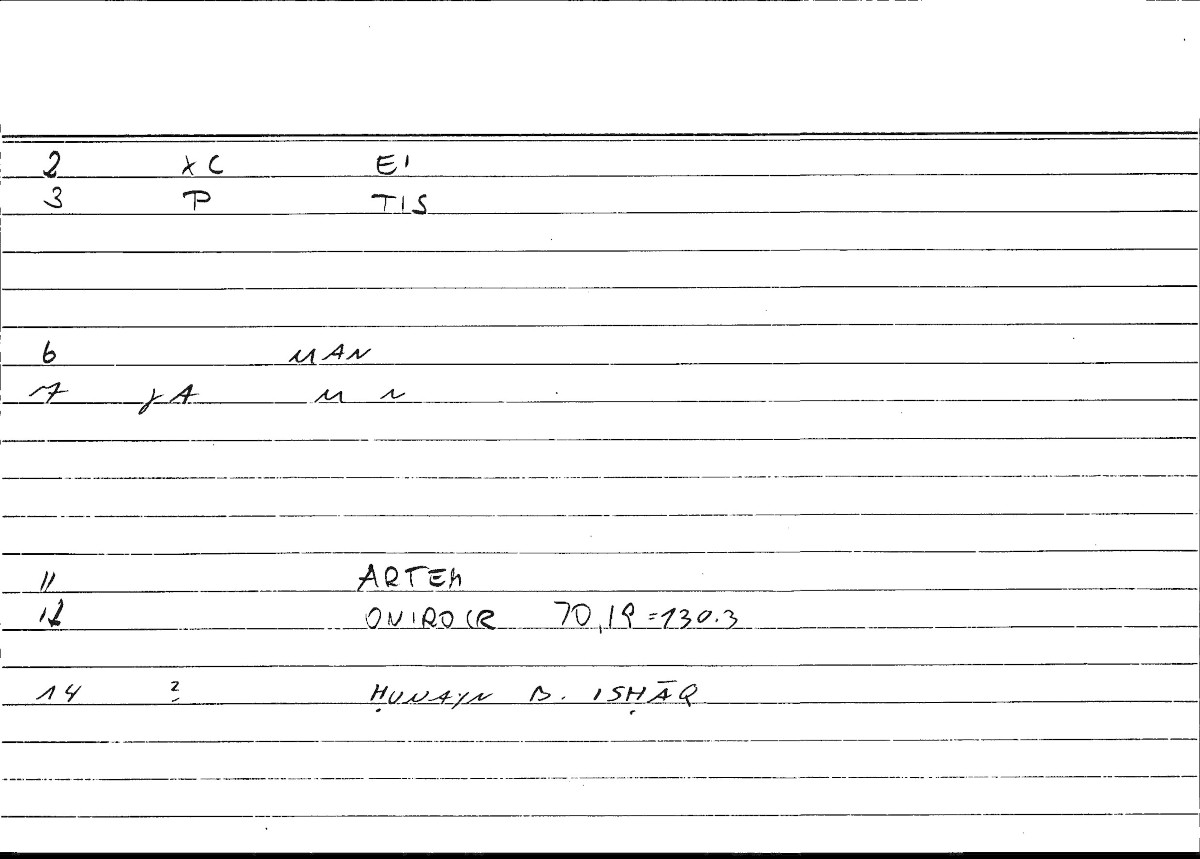 2 XC EI
3 P TIS
6 MAN
7 JA M N
11 ARTEM
12 ONIROCR 70,19=130.3
14 ? ḤUNAYN B. ISḤĀQ